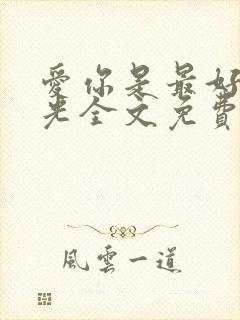 愛你是最好
光全文免費
風雲一道